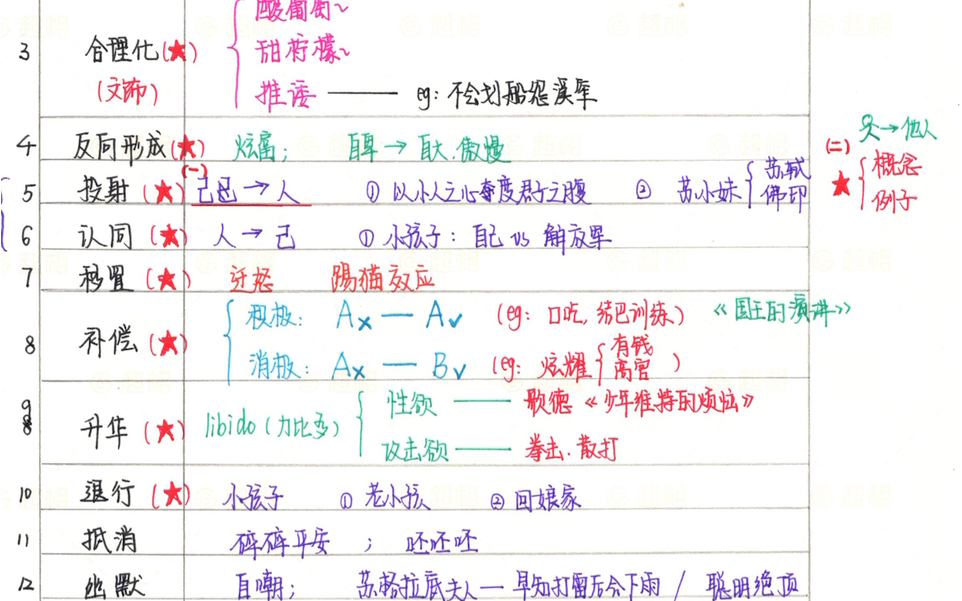 酸葡萄~
3 合理化(★) 甜柠檬~
(文饰) 推诿 —— eg: 不会划船怨溪窄
4 反向形成(★) 炫富; 自卑→自大.傲慢
5 投射(★) (一) 自己→人 ①以小人之心奪度君子之腹 ② 苏小妹 { 苏轼 佛印 (二) ★ { 概念 例子 →他人
6 认同(★) 人→己 ①小孩子: 自己 vs 解放军
7 移置(★) 迁怒 踢猫效应
8 补偿(★) 积极: A× — A✓ (eg: 口吃,结巴训练) 《国王的演讲》
消极: A× — B✓ (eg: 炫耀 { 有钱 高官 )
9 升华(★) libido(力比多) 性欲 —— 歌德《少年维特的烦恼》
攻击欲 —— 拳击.散打
10 退行(★) 小孩子 ①老小孩 ②回娘家
11 抵消 碎碎平安 ; 呸呸呸
12 幽默 自嘲; 苏格拉底夫人—早知打雷后会下雨 / 聪明绝顶